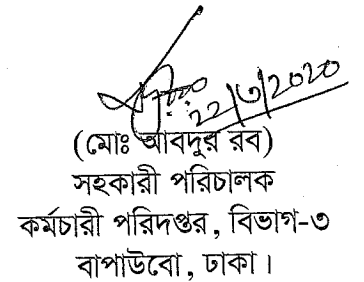 22/৩/2020
(মোঃ আবদুর রব)
সহকারী পরিচালক
কর্মচারী পরিদপ্তর, বিভাগ-৩
বাপাউবো, ঢাকা।